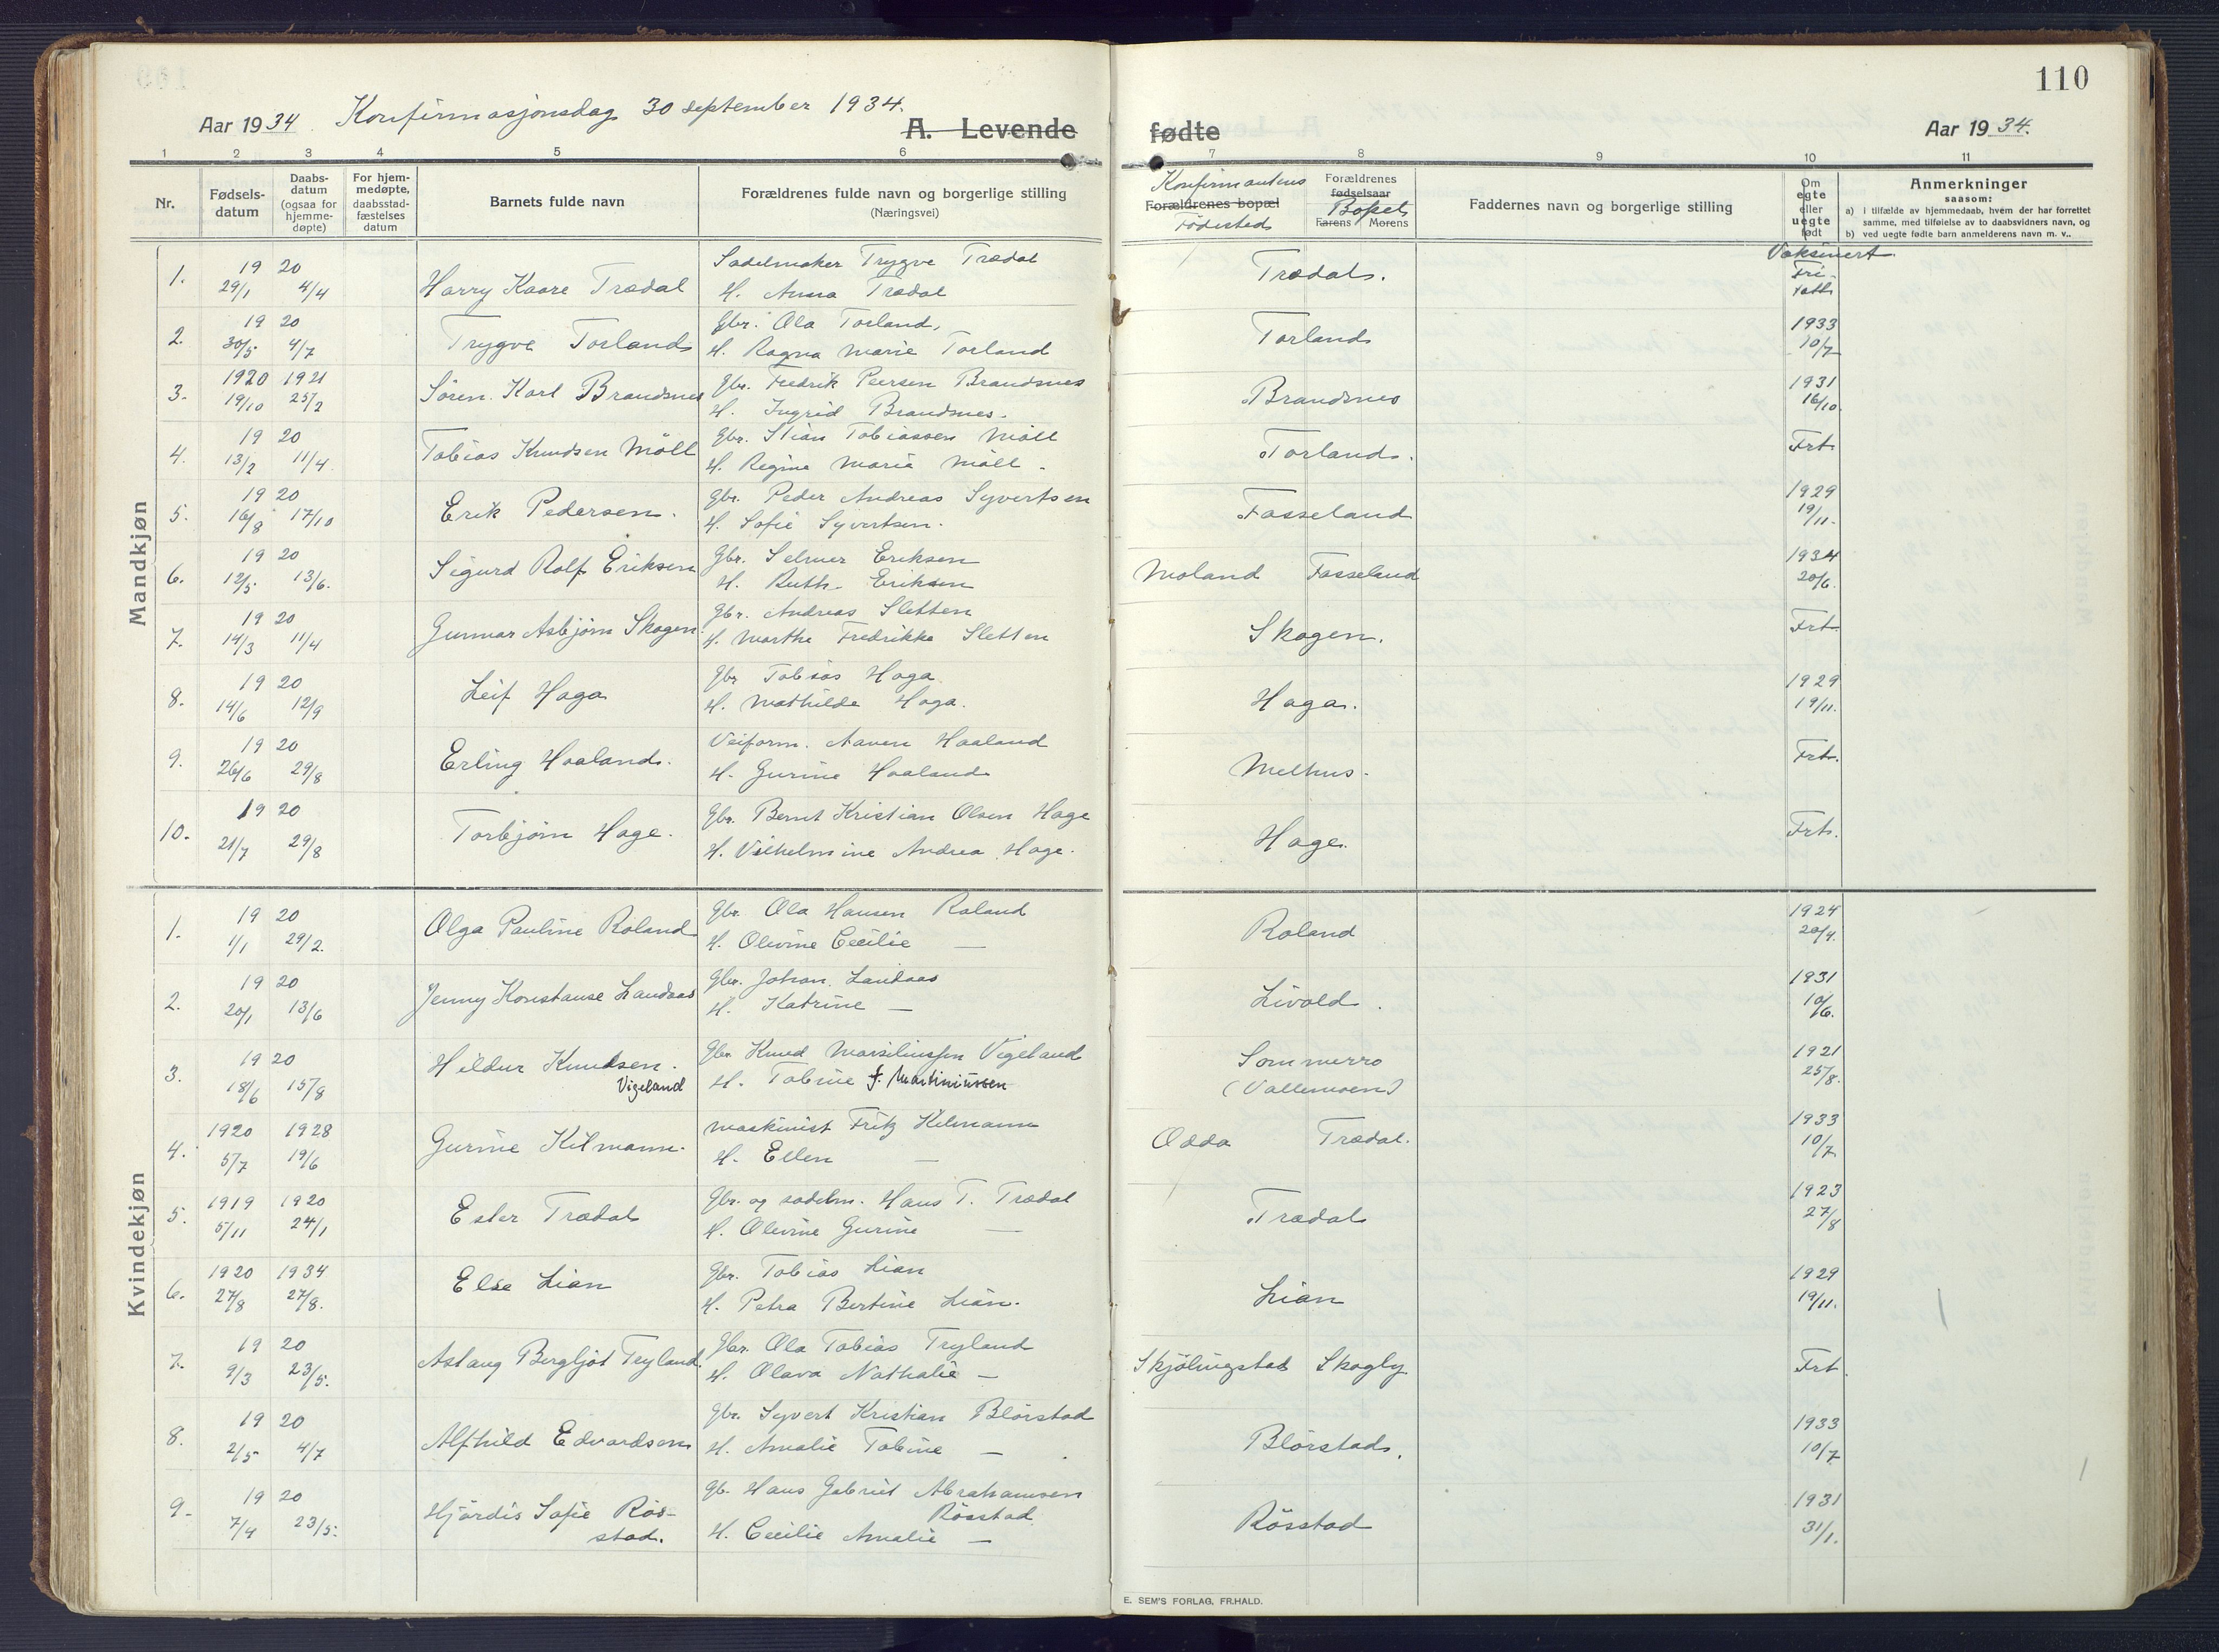 110
Aar 1934. Konfirmasjonsdag 30 september 1934.
A. Levende fødte
Aar 1934.
1 2 3 4 5 6 7 8 9 10 11
Nr.
Fødsels-
datum
Daabs-
datum
(ogsaa for
hjemme-
døpte)
For hjem-
medøpte,
daabsstad-
fæstelses
datum
Barnets fulde navn
Forældrenes fulde navn og borgerlige stilling
(Næringsvei)
Konfirmantens
Forældrenes bopæl
Fødested
Forældrenes
fødselsaar
Bopel
Farens Morens
Faddernes navn og borgerlige stilling
Om
egte
eller
uegte
født
Anmerkninger
saasom:
a) i tilfælde av hjemmedaab, hvem der har forrettet
samme, med tilføielse av to daabsvidners navn, og
b) ved uegte fødte barn anmelderens navn m. v..
Vaksinert
Mandkjøn
1. 19 20 Sadelmaker Trygve Trædal
29/1 4/4 Harry Kaare Trædal H. Anna Trædal Trædal.
2. 19 20 Gbr. Ola Torland. 1933
30/5 4/7 Trygve Torland H. Ragna Marie Torland Torland 10/7
3. 1920 1921 Gbr. Fredrik Peersen Brandsnes 1931
19/10 25/2 Sören Karl Brandsnes H. Ingrid Brandsnes. Brandsnes 16/10
4. 19 20 Gbr. Stian Tobiassen Möll Frt.
13/2 11/4 Tobias Knudsen Möll H. Regine Marie Möll. Torland.
5. 19 20 Gbr. Peder Andreas Syvertsen 1929
16/8 17/10 Erik Pedersen. H. Sofie Syvertsen. Fasseland 19/11.
6. 19 20 Gbr. Selmer Eriksen 1934
12/5 13/6. Sigurd Rolf Eriksen H. Ruth Eriksen Moland Fasseland 20/6.
7. 19 20 Gbr. Andreas Sletten Frt.
14/3 11/4 Gunnar Asbjörn Skogen H. Marthe Fredrikke Sletten Skogen.
8. 19 20 Gbr Tobias Haga 1929
14/6 12/9 Leif Haga H. Mathilde Haga. Haga. 19/11.
9. 19 20 Veiform. Aanen Haaland Frt.
26/6 29/8 Erling Haaland. H. Gurine Haaland Melhus.
10. 19 20 Gbr. Bernt Kristian Olsen Hage Frt.
21/7 29/8 Torbjörn Hage. H. Vilhelmine Andrea Hage. Hage.
Kvindekjøn
1. 19 20 Gbr. Ola Hansen Roland 1924
1/1 29/2. Olga Pauline Roland H. Olevine Cecilie — Roland 20/4.
2. 19 20 Gbr. Johan Landaas 1931
20/1 13/6 Jenny Konstanse Landaas H. Katrine — Livold. 10/6.
3. 19 20 Gbr. Knud Marsiliussen Vigeland 1921
18/6 15/8 Hildur Knudsen. Vigeland H. Tobine f. Martiniussen Sommerro 25/8.
(Vallemoen)
4. 1920 1928 Maskinist Fritz Kilmann 1933
5/7 19/6 Gurine Kilmann. H. Ellen — Odda Trædal. 10/7
5. 1919 1920 Gbr. og sadelm. Hans T. Trædal 1923
5/11 24/1 Ester Trædal H. Olevine Gurine — Trædal 27/8
6. 1920 1934 Gbr. Tobias Lian 1929
27/8 27/8. Else Lian H. Petra Bertine Lian. Lian 19/11.
7. 19 20 Gbr. Ola Tobias Tryland Frt
9/3 23/5. Aslaug Bergljot Tryland. H. Olava Nathalie — Skjölingstad Skogly
8. 19 20 Gbr. Syvert Kristian Blörstad 1933
2/5 4/7 Alfhild Edvardsen H. Amalie Tobine — Blörstad. 10/7
9. 19 20 Gb. Hans Gabriel Abrahamsen 1931
7/4 23/5. Hjördis Sofie Rös- Rösstad Rösstad 31/1.
stad. H. Cecilie Amalie —
E. SEM'S FORLAG, FR.HALD.